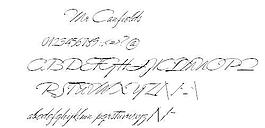 Mr Canfields
0123456789
ABCDEFGHIJKLMNOPQ
RSTUVWXYZ
abcdefghijklmnopqrstuvwxyz